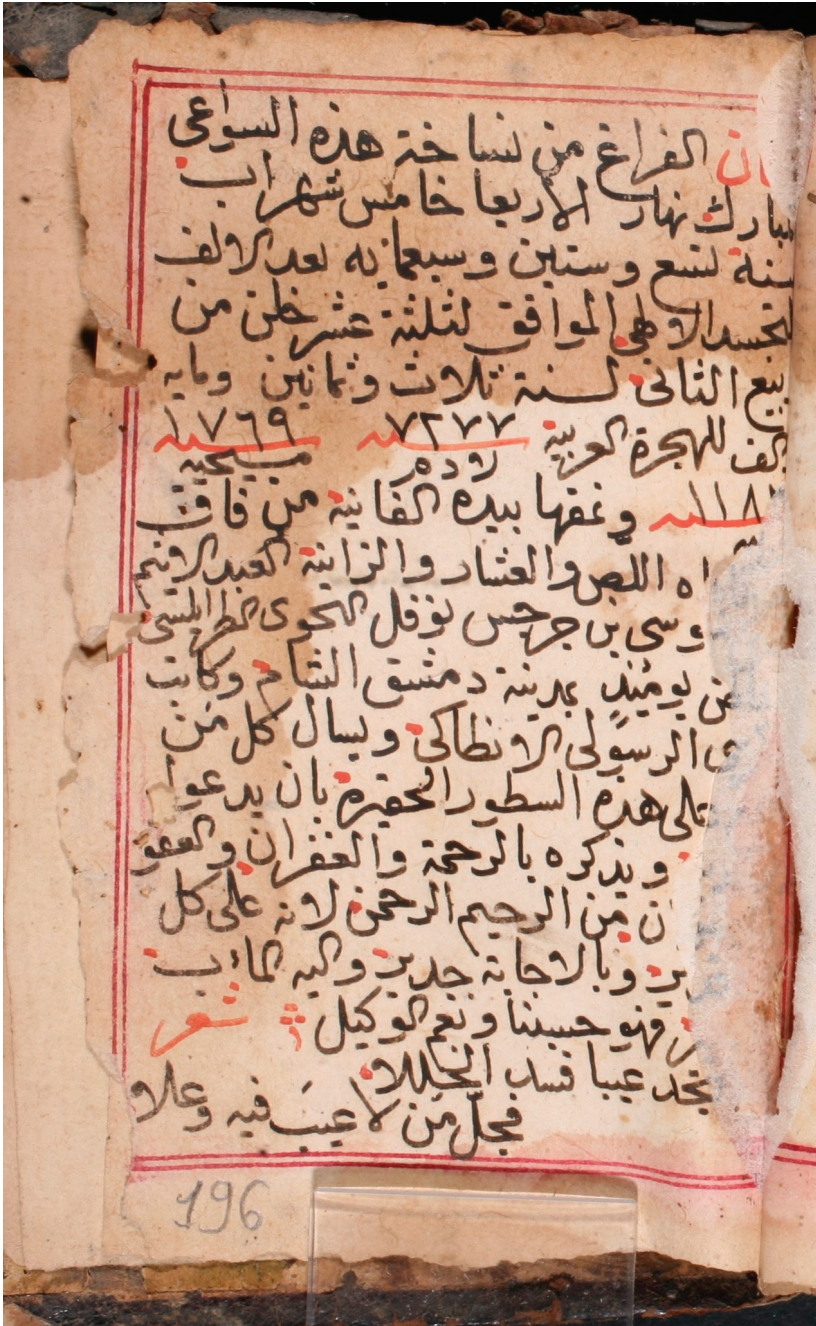 ان الفراغ من نساخة هذه السواعى
مبارك نهار الاربعا خامس شهر اب
سنة تسع وستين وسبعمايه بعد الالف
لتجسد الالهي الموافق لثلثة عشر خلت من
بيع الثانى لسنة ثلاث وثمانين ومايه
الف للهجرة العربية ٧٢٧٧ ١٧٦٩
لادم مسيحيه
١١٨ ونمقها بيده الفانية من فاق
اه اللص والعشار والزانية العبد الاثيم
وسى بن جرجس نوفل النحوى الطرابلسى
يوميذٍ بمدينة دمشق الشام وكاتب
الرسولى الانطاكى ويسال كل من
على هذه السطور الحقيرة بان يدعوا
ويذكره بالرحمة والغفران والعفو
ن من الرحيم الرحمن لانه على كل
ير وبالاجابة جدير واليه الماب
فهو حسبنا ونعم الوكيل شعر
تجد عيبا فسد الخللا
فجلّ من لا عيبَ فيه وعلا
196